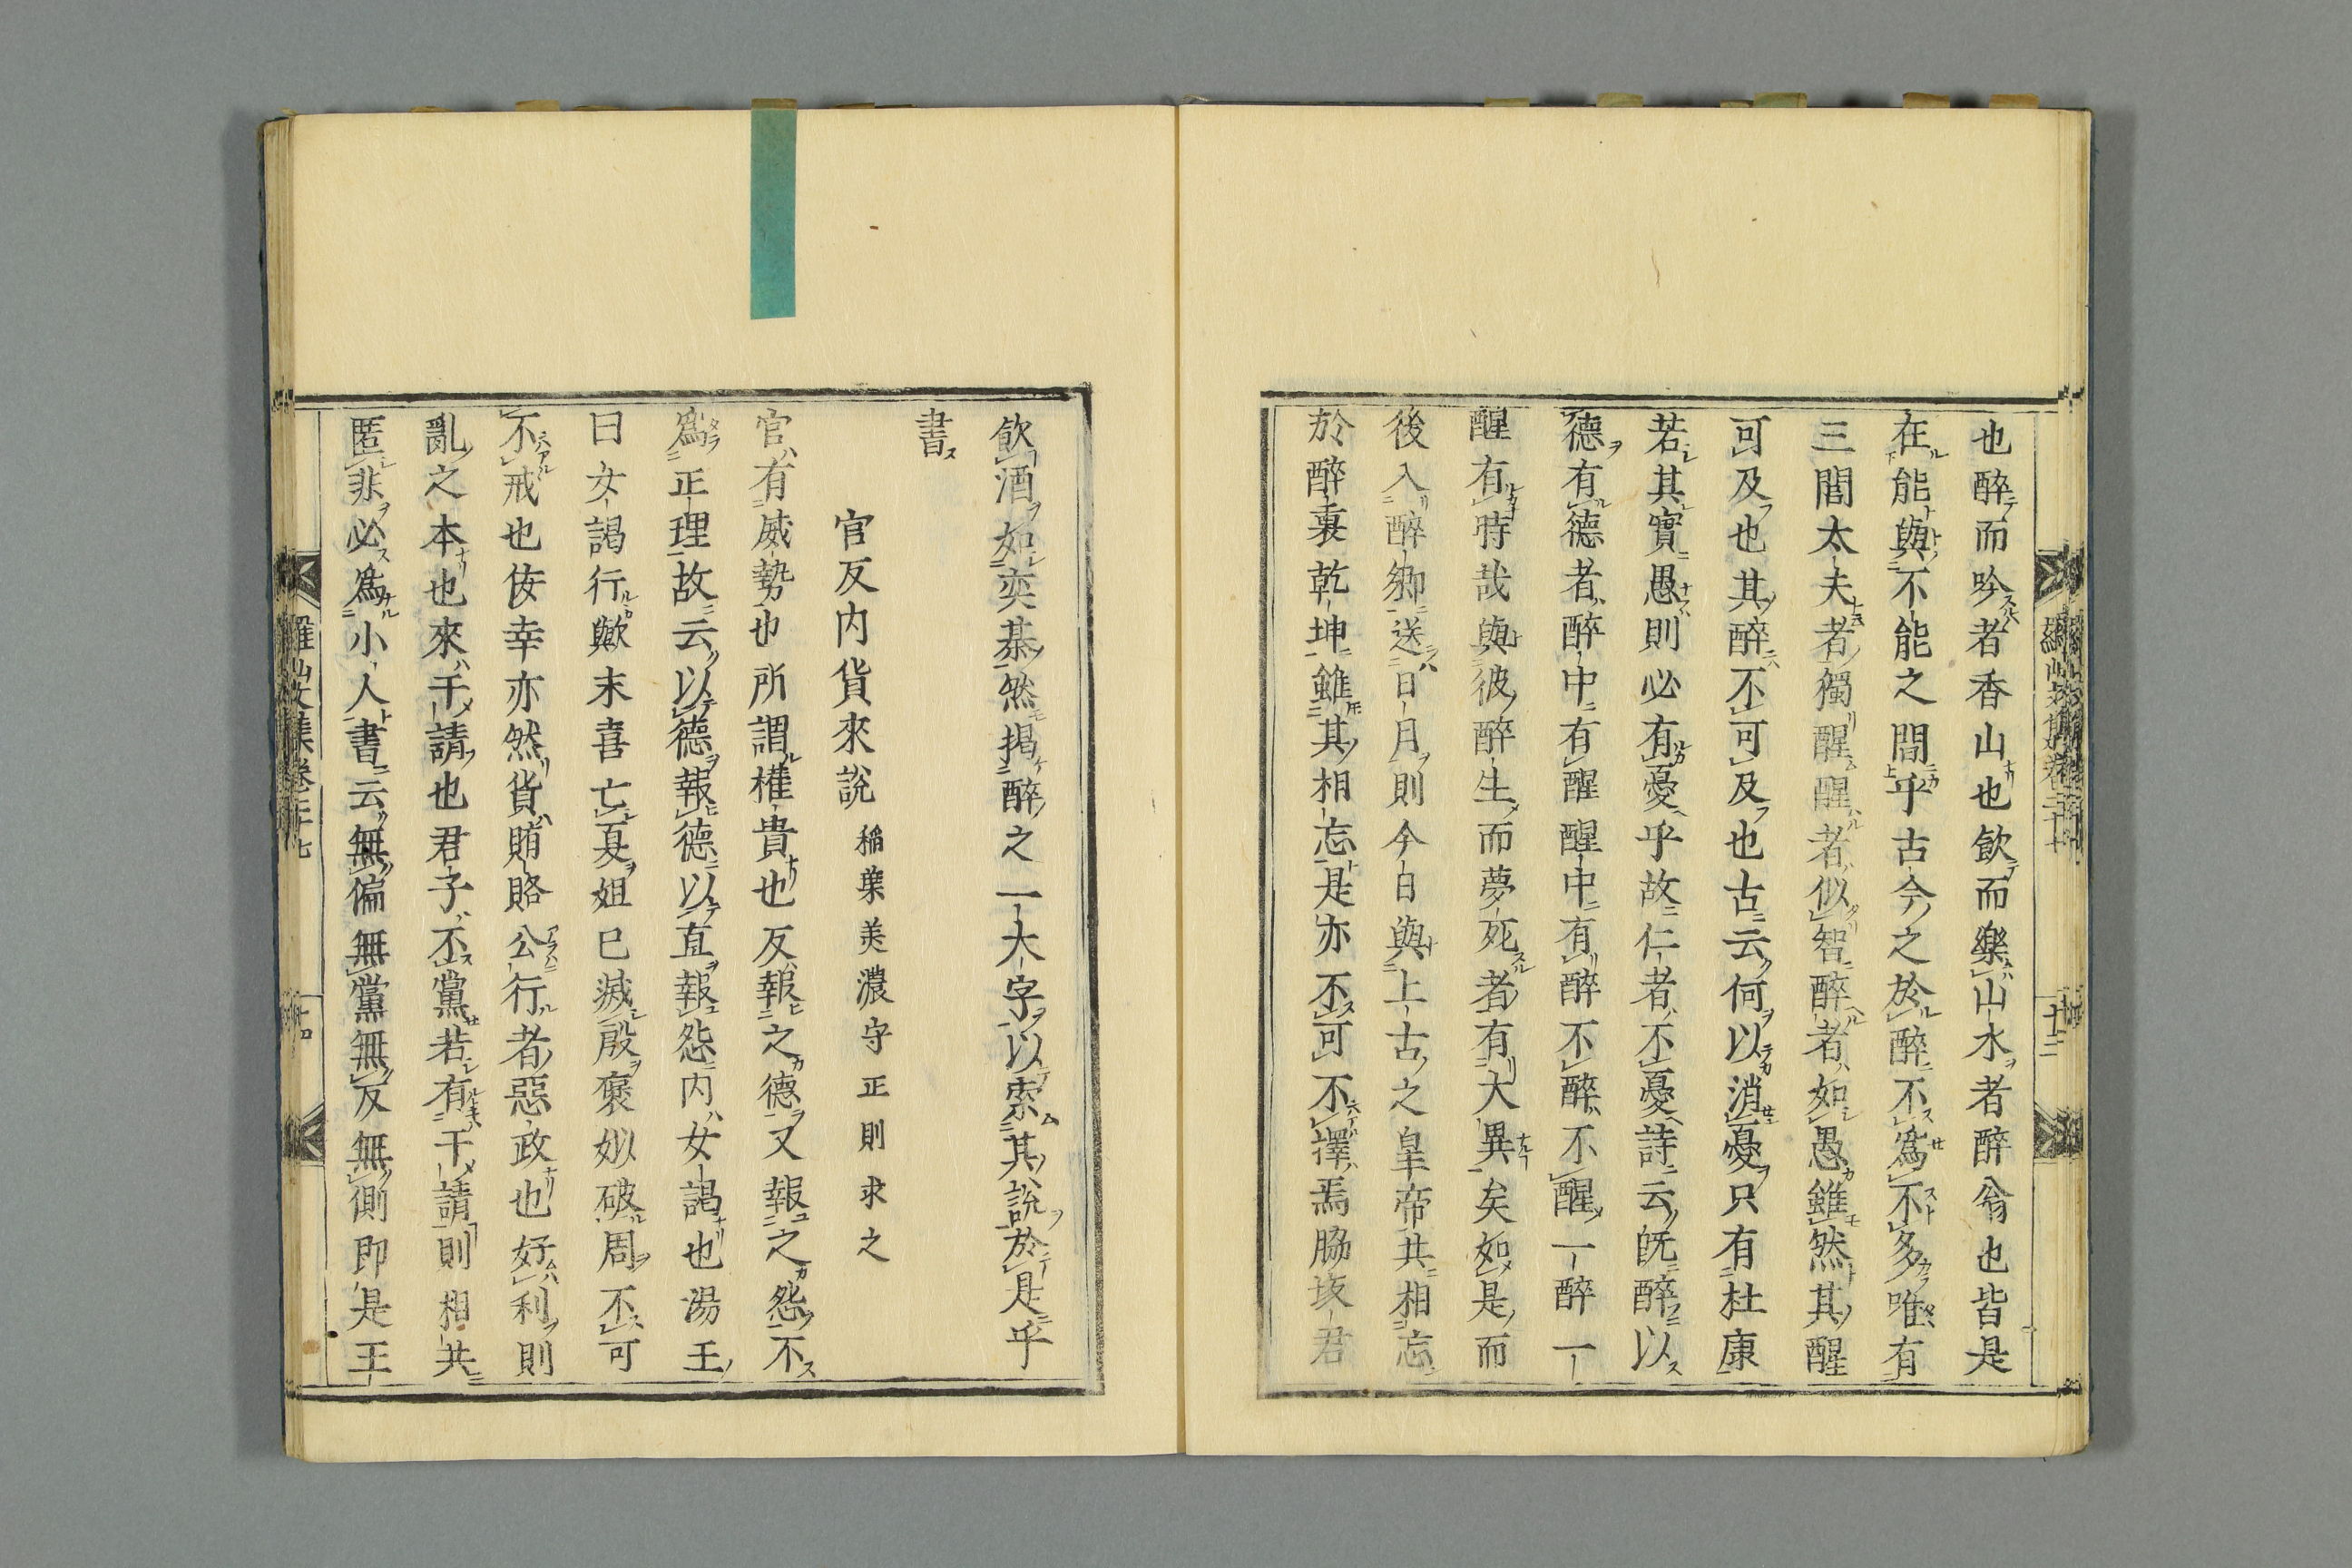 也醉而吟者香山也飲而樂山水者醉翁也皆是
在能與不能之間乎古今之於醉不爲不多唯有
三閭太夫者獨醒醒者似智醉者如愚雖然其醒
可及也其醉不可及也古云何以消憂只有杜康
若其實愚則必有憂乎故仁者不憂詩云既醉以
德有德者醉中有醒醒中有醉不醉不醒一醉一
醒有時哉與彼醉生而夢死者有大異矣如是而
後入醉鄉送日月則今日與上古之皇帝共相忘
於醉裏乾坤雖其相忘是亦不可不擇焉脇坂君
飲酒如奕棊然揭醉之一大字以索其說於是乎
書
官反内貨來說 稲葉美濃守正則求之
官有威勢也所謂權貴也反報之德又報之怨不
爲正理故云以德報德以直報怨内女謁也湯王
曰女謁行歟末喜亡夏妲己滅殷褒姒破周不可
不戒也佞幸亦然貨賄賂公行者惡政也好利則
亂之本也來干請也君子不黨若有干請則相共
匿非必爲小人書云無偏無黨無反無側即是王
羅山文集卷二十七